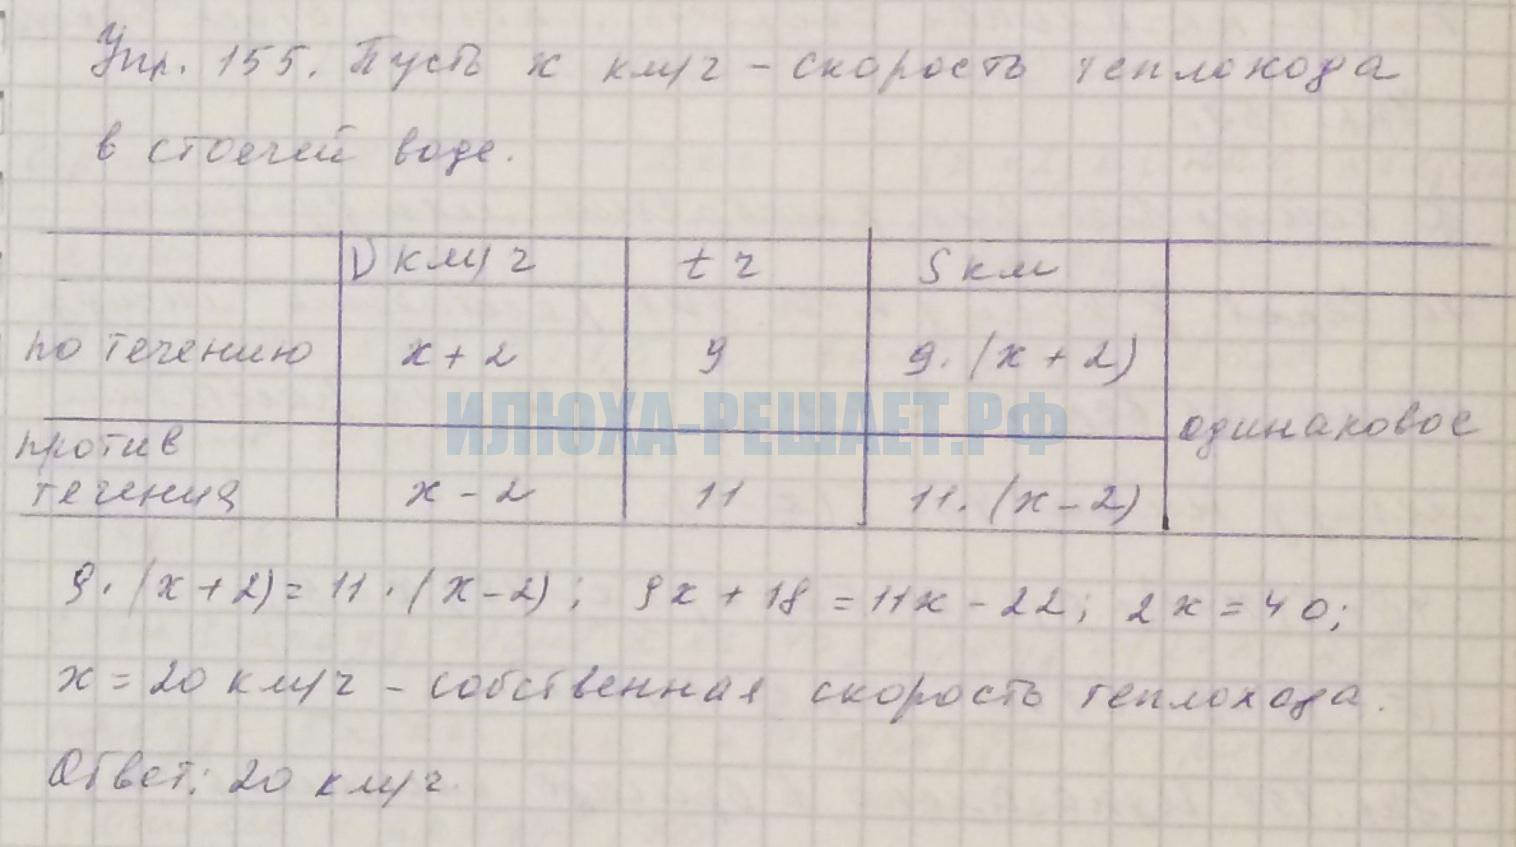 Упр. 155. Пусть х км/ч – скорость теплохода
в стоячей воде.
V км/ч t ч S км
по течению х + 2 9 9 · (х + 2)
ИЛЮХА-РЕШАЕТ.РФ
одинаковое
против
течения х – 2 11 11 · (х – 2)
9 · (х + 2) = 11 · (х – 2); 9х + 18 = 11х – 22; 2х = 40;
х = 20 км/ч – собственная скорость теплохода.
Ответ: 20 км/ч.